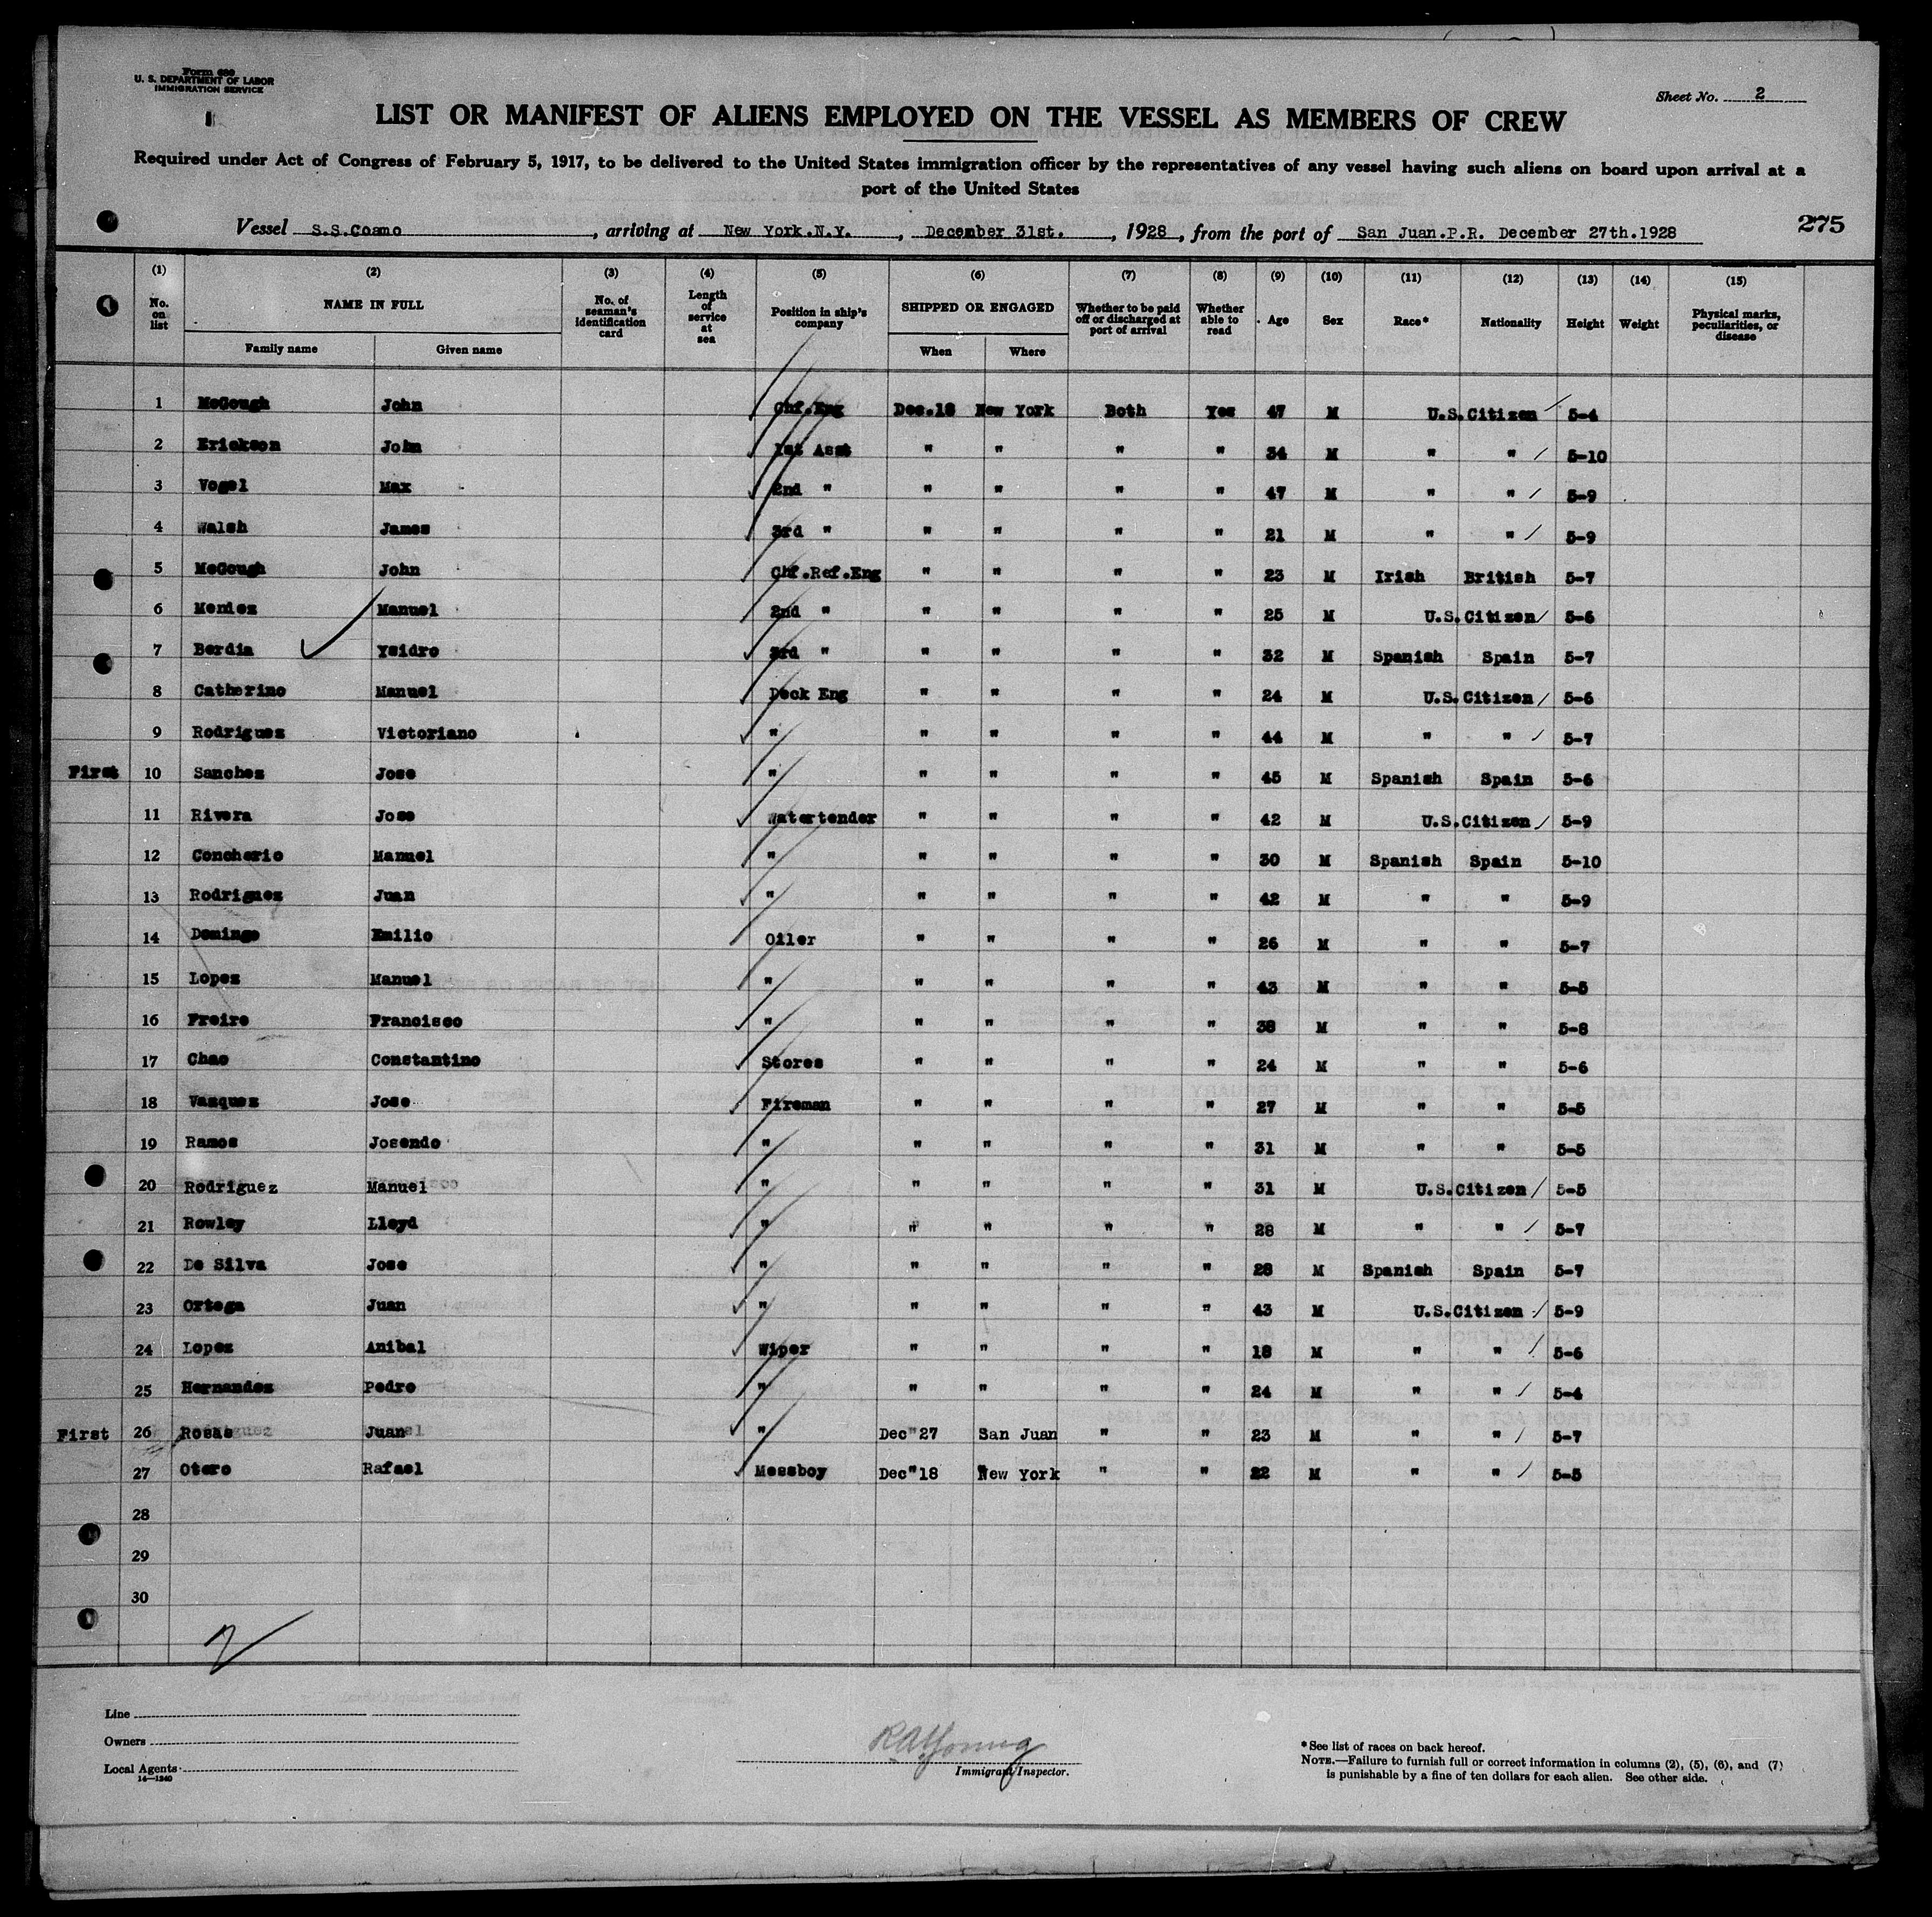 Form 680
U. S. DEPARTMENT OF LABOR
IMMIGRATION SERVICE
Sheet No. 2
LIST OR MANIFEST OF ALIENS EMPLOYED ON THE VESSEL AS MEMBERS OF CREW
Required under Act of Congress of February 5, 1917, to be delivered to the United States immigration officer by the representatives of any vessel having such aliens on board upon arrival at a
port of the United States
Vessel S.S.Coamo, arriving at New York.N.Y., December 31st., 1928, from the port of San Juan.P.R. December 27th.1928 275
(1) (2) (3) (4) (5) (6) (7) (8) (9) (10) (11) (12) (13) (14) (15)
No. on list NAME IN FULL Family name Given name No. of seaman's identification card Length of service at sea Position in ship's company SHIPPED OR ENGAGED When Where Whether to be paid off or discharged at port of arrival Whether able to read Age Sex Race* Nationality Height Weight Physical marks, peculiarities, or disease
1 McGough John Chf.Eng Dec.18 New York Both Yes 47 M U.S.Citizen 5-4
2 Erickson John 1st Asst " " " " 34 M " " 5-10
3 Vogel Max 2nd " " " " " 47 M " " 5-9
4 Walsh James 3rd " " " " " 21 M " " 5-9
5 McGough John Chf.Ref.Eng " " " " 23 M Irish British 5-7
6 Mendez Manuel 2nd " " " " " 25 M U.S.Citizen 5-6
7 Berdia Ysidro 3rd " " " " " 32 M Spanish Spain 5-7
8 Catherino Manuel Deck Eng " " " " 24 M U.S.Citizen 5-6
9 Rodriguez Victoriano " " " " " 44 M " " 5-7
First 10 Sanchez Jose " " " " " 45 M Spanish Spain 5-6
11 Rivera Jose Watertender " " " " 42 M U.S.Citizen 5-9
12 Concherio Manuel " " " " " 30 M Spanish Spain 5-10
13 Rodriguez Juan " " " " " 42 M " " 5-9
14 Domingo Emilio Oiler " " " " 26 M " " 5-7
15 Lopez Manuel " " " " " 43 M " " 5-5
16 Freire Francisco " " " " " 38 M " " 5-8
17 Chao Constantino Stores " " " " 24 M " " 5-6
18 Vazquez Jose Fireman " " " " 27 M " " 5-5
19 Ramos Josendo " " " " " 31 M " " 5-5
20 Rodriguez Manuel " " " " " 31 M U.S.Citizen 5-5
21 Rowley Lloyd " " " " " 28 M " " 5-7
22 De Silva Jose " " " " " 28 M Spanish Spain 5-7
23 Ortega Juan " " " " " 43 M U.S.Citizen 5-9
24 Lopez Anibal Wiper " " " " 18 M " " 5-6
25 Hernandez Pedro " " " " " 24 M " " 5-4
First 26 Rosas Juan " Dec"27 San Juan " " 23 M " " 5-7
27 Otero Rafael Messboy Dec"18 New York " " 22 M " " 5-5
28
29
30
2
Line
Owners
Local Agents
14-1240
RAYoung
Immigrant Inspector.
*See list of races on back hereof.
NOTE.—Failure to furnish full or correct information in columns (2), (5), (6), and (7)
is punishable by a fine of ten dollars for each alien. See other side.